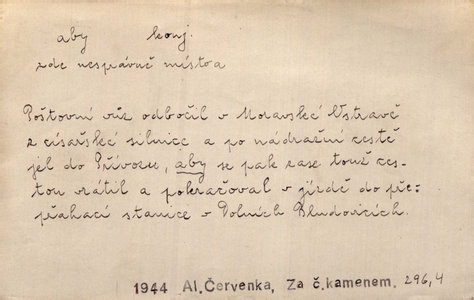 aby konj.
zde nesprávně místo a
Poštovní vůz odbočil v Moravské Ostravě
z císařské silnice a po nádražní cestě
jel do Přívozu, aby se pak zase touž ces-
tou vrátil a pokračoval v jízdě do pře-
přahací stanice v Dolních Bludovicích.
1944 Al. Červenka, Za č.kamenem. 296,4